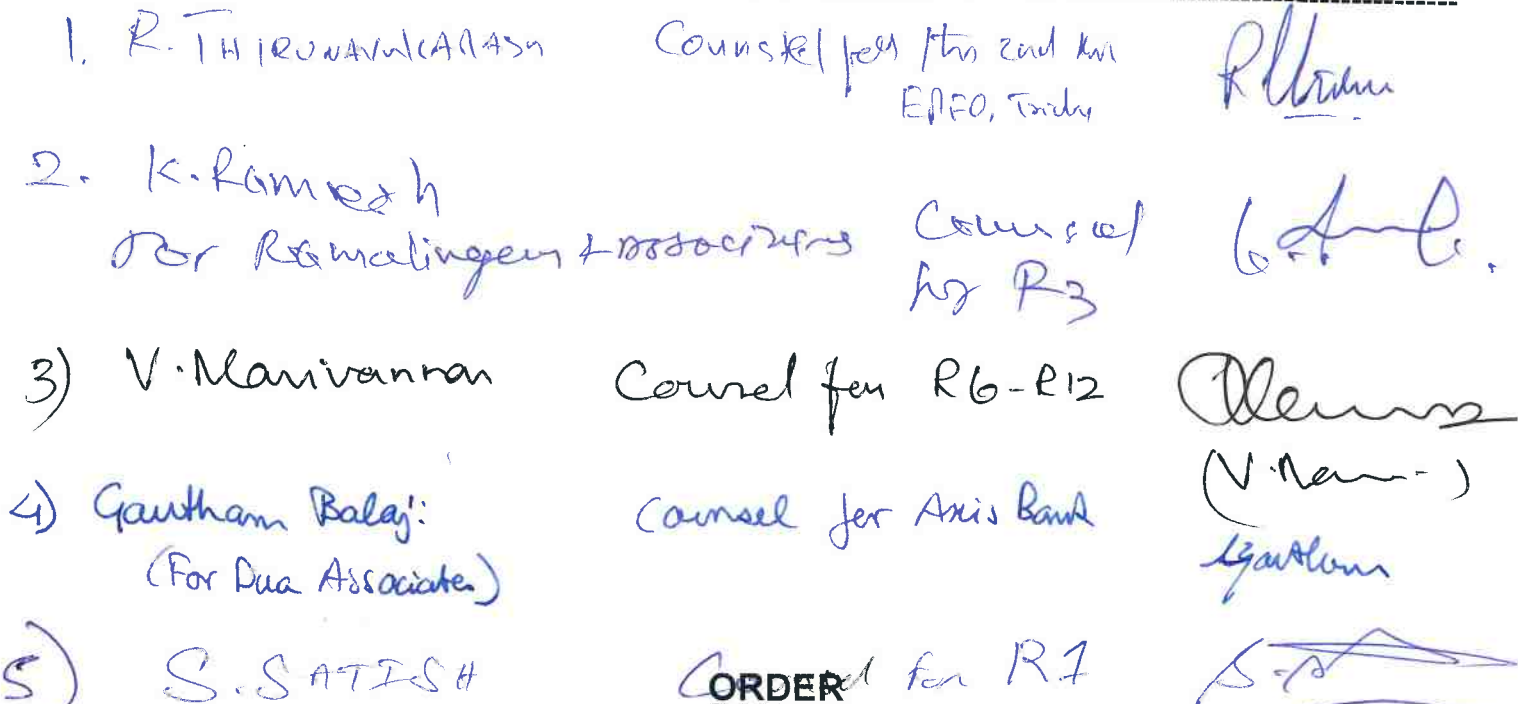 1. R. THIRUNAVUKARASU Counsel for the 2nd
EPFO, Trichy
2. K. Ramesh
For Ramalingam & Associates Counsel
for R3
3) V. Manivannan Counsel for R6-R12
(V. Mani-)
4) Gautham Balaji
(For Dua Associates) Counsel for Axis Bank
Gautham
5) S. SATISH Counsel for R1
ORDER